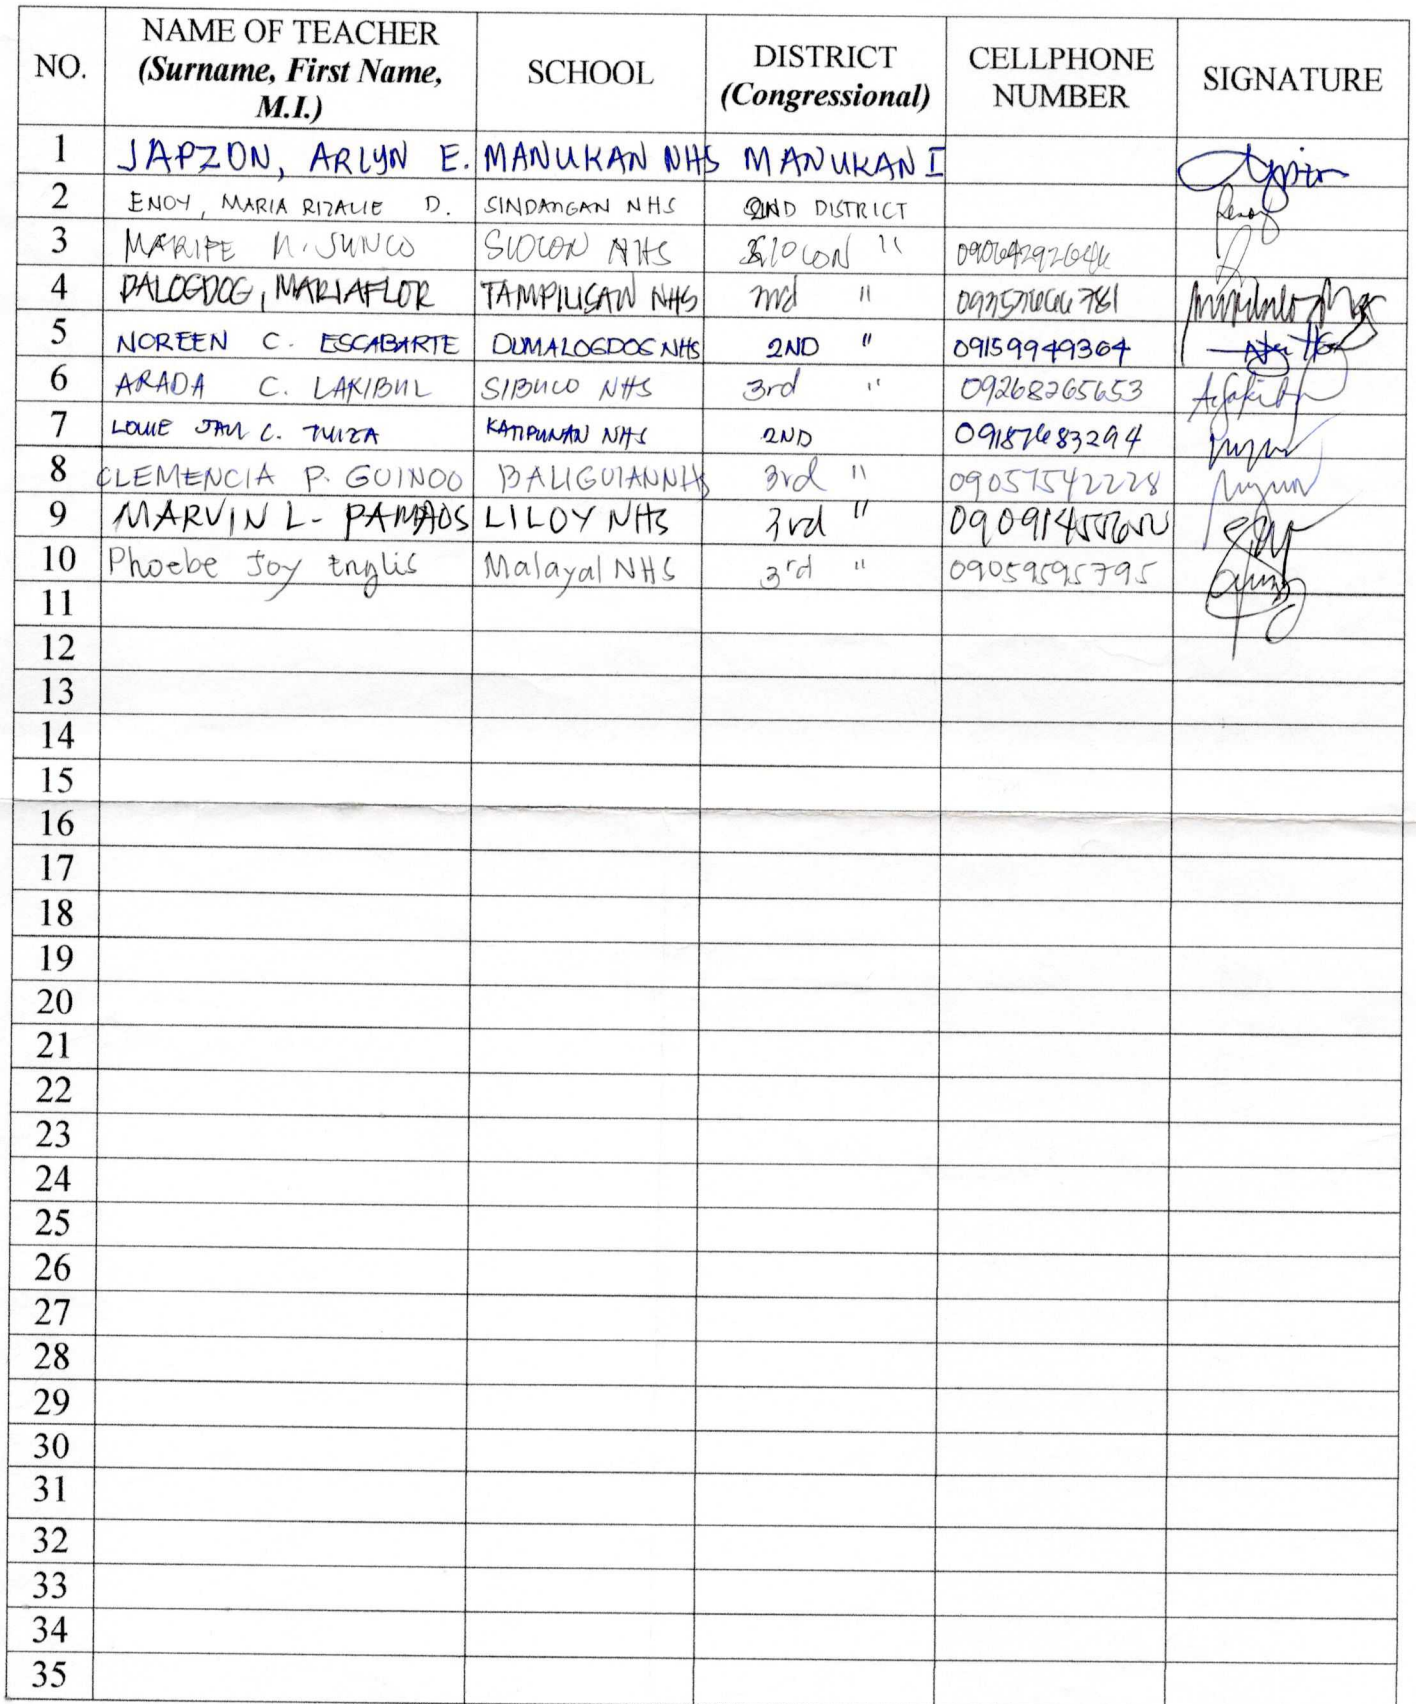 NO. NAME OF TEACHER (Surname, First Name, M.I.) SCHOOL DISTRICT (Congressional) CELLPHONE NUMBER SIGNATURE
1 JAPZON, ARLYN E. MANUKAN NHS MANUKAN I
2 ENOY, MARIA RIZALIE D. SINDANGAN NHS 2ND DISTRICT
3 MARIFE N. JUNCO SIOCON NHS SIOCON "
4 DALOGDOG, MARIAFLOR TAMPILISAN NHS "
5 NOREEN C. ESCABARTE DUMALOGDOG NHS 2ND " 09159949364
6 ARADA C. LAKIBUL SIBUCO NHS 3rd " 09268265653
7 LOUIE C. KATIPUNAN NHS 2ND 09187683294
8 CLEMENCIA P. GUINOO BALIGUIAN NHS 3rd " 09057542228
9 MARVIN L. PAMAOS LILOY NHS 3rd "
10 Phoebe Joy Englis Malayal NHS 3rd " 09059595795
11
12
13
14
15
16
17
18
19
20
21
22
23
24
25
26
27
28
29
30
31
32
33
34
35